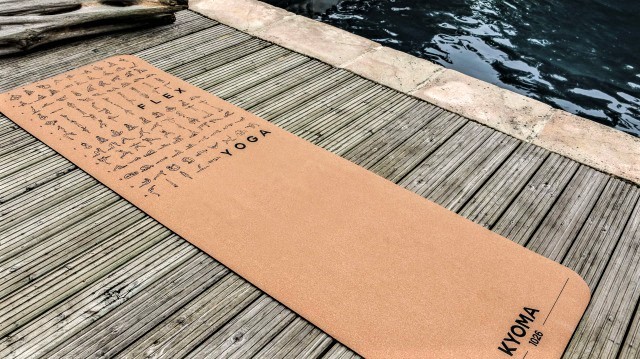 FLEX
YOGA
KYOMA
1026